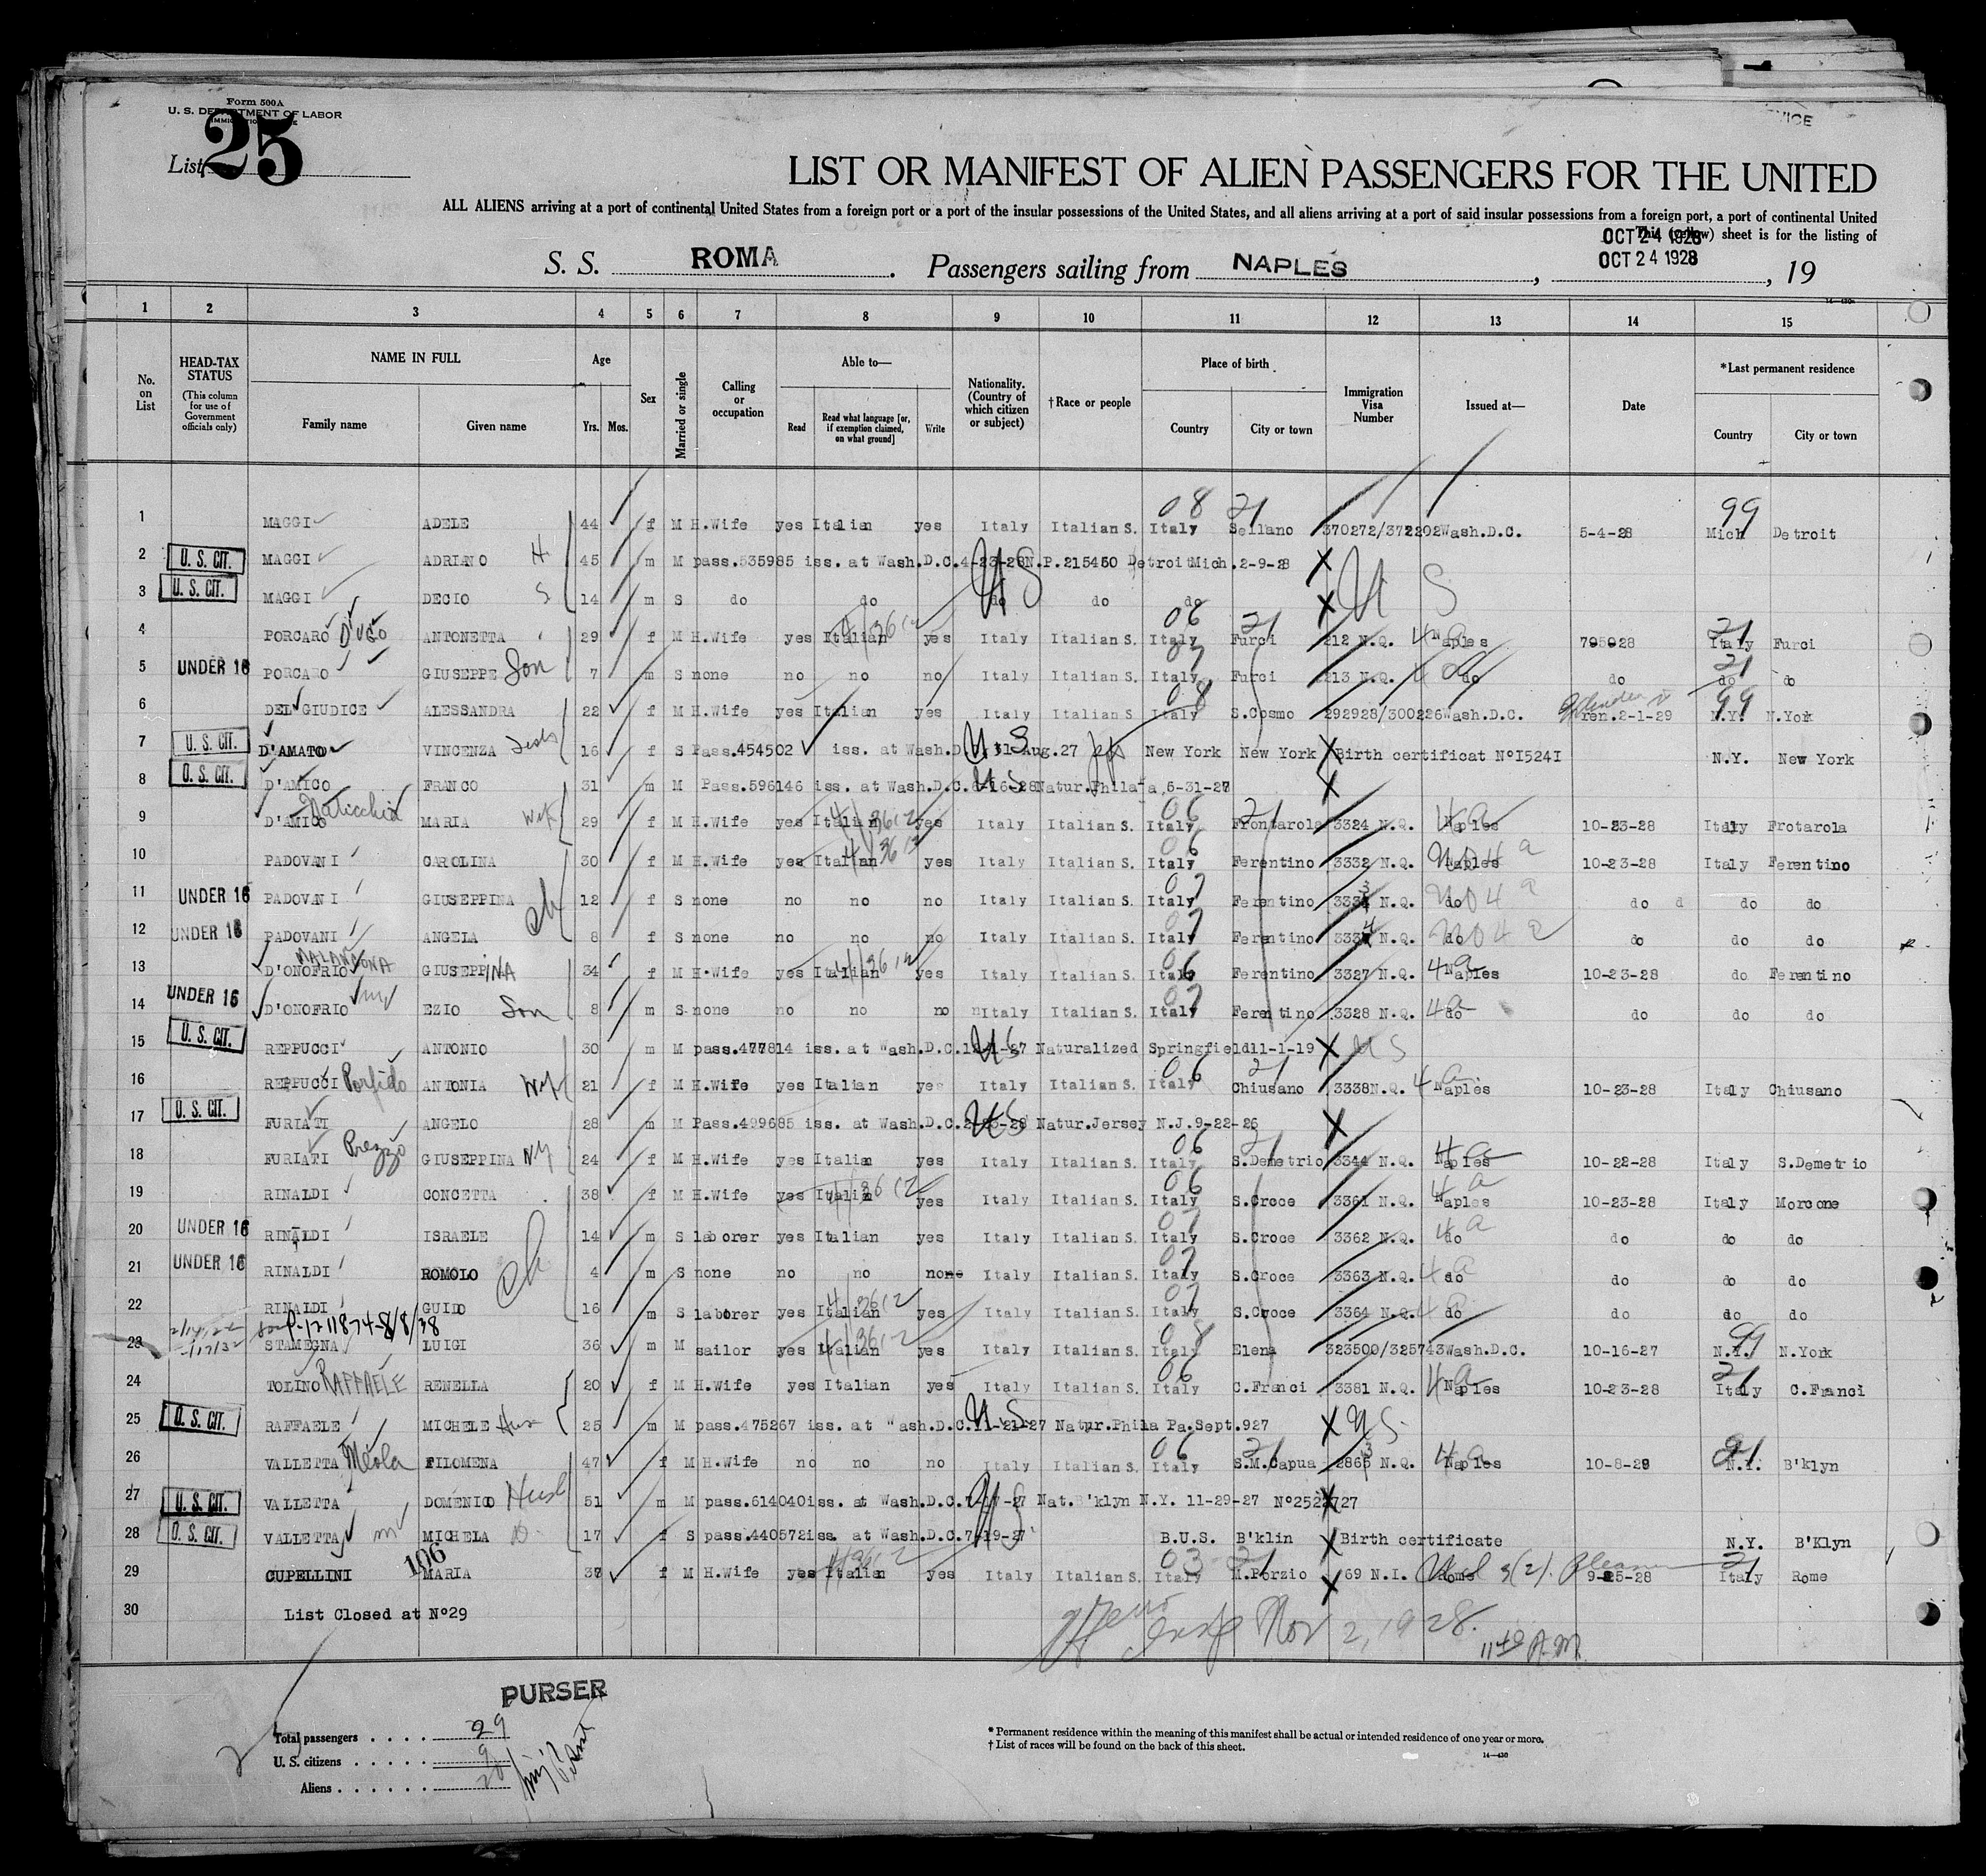 VICE
Form 500A
U. S. DEPARTMENT OF LABOR
List 25
LIST OR MANIFEST OF ALIEN PASSENGERS FOR THE UNITED
ALL ALIENS arriving at a port of continental United States from a foreign port or a port of the insular possessions of the United States, and all aliens arriving at a port of said insular possessions from a foreign port, a port of continental United
This (yellow) sheet is for the listing of
OCT 24 1928
S. S. ROMA . Passengers sailing from NAPLES , OCT 24 1928 , 19
1 2 3 4 5 6 7 8 9 10 11 12 13 14 15
No. on List
HEAD-TAX STATUS (This column for use of Government officials only)
NAME IN FULL
Family name Given name
Age
Yrs. Mos.
Sex
Married or single
Calling or occupation
Able to—
Read Read what language [or, if exemption claimed, on what ground] Write
Nationality. (Country of which citizen or subject)
†Race or people
Place of birth
Country City or town
Immigration Visa Number
Issued at—
Date
*Last permanent residence
Country City or town
1 MAGGI ADELE 44 f M H.Wife yes Italian yes Italy Italian S. Italy 08 Sellano 21 370272/372292 Wash.D.C. 5-4-28 Mich 99 Detroit
2 U. S. CIT. MAGGI ADRIANO H 45 m M pass.535985 iss. at Wash.D.C.4-23-28 N.P.215450 Detroit Mich.2-9-28 X
3 U. S. CIT. MAGGI DECIO S 14 m S do do do do do X U S
4 PORCARO D'UGO ANTONETTA 29 f M H.Wife yes Italian yes Italy Italian S. Italy 06 Furci 21 212 N.Q. Naples 4 Italy 21 Furci
5 UNDER 16 PORCARO GIUSEPPE Son 7 m S none no no no Italy Italian S. Italy 07 Furci 213 N.Q. do do do 21 do
6 DEL GIUDICE ALESSANDRA 22 f M H.Wife yes Italian yes Italy Italian S. Italy 08 S.Cosmo 292928/300226 Wash.D.C. ren.2-1-29 N.Y. 99 N.York
7 U. S. CIT. D'AMATO VINCENZA 16 f S Pass.454502 iss. at Wash.D.C. 31 Aug.27 US New York New York X Birth certificat Nº15241 N.Y. New York
8 U. S. CIT. D'AMICO FRANCO 31 m M Pass.596146 iss. at Wash.D.C. US Natur.Phila a,5-31-27 X
9 D'AMICO MARIA Wife 29 f M H.Wife yes Italian yes Italy Italian S. Italy 06 Frontarola 21 3324 N.Q. Naples 4a 10-23-28 Italy Frotarola
10 PADOVANI CAROLINA 30 f M H.Wife yes Italian yes Italy Italian S. Italy 06 Ferentino 3332 N.Q. Naples 10-23-28 Italy Ferentino
11 UNDER 16 PADOVANI GIUSEPPINA ch 12 f S none no no no Italy Italian S. Italy 07 Ferentino 3333 N.Q. do do d do do
12 UNDER 16 PADOVANI ANGELA 8 f S none no no no Italy Italian S. Italy 07 Ferentino 3334 N.Q. do do do do
13 D'ONOFRIO GIUSEPPINA 34 f M H.Wife yes Italian yes Italy Italian S. Italy 06 Ferentino 3327 N.Q. Naples 4a 10-23-28 do Ferentino
14 UNDER 16 D'ONOFRIO EZIO Son 8 m S none no no no Italy Italian S. Italy 07 Ferentino 3328 N.Q. do 4a do do do
15 U. S. CIT. REPPUCCI ANTONIO 30 m M pass.477814 iss. at Wash.D.C. US Naturalized Springfield 11-1-19 X US
16 REPPUCCI Porfido ANTONIA Wife 21 f M H.Wife yes Italian yes Italy Italian S. Italy 06 Chiusano 21 3338 N.Q. Naples 4a 10-23-28 Italy Chiusano
17 U. S. CIT. FURIATI ANGELO 28 m M Pass.499685 iss. at Wash.D.C. US Natur.Jersey N.J.9-22-26 X
18 FURIATI Prezzo GIUSEPPINA Wf 24 f M H.Wife yes Italian yes Italy Italian S. Italy 06 S.Demetrio 21 3344 N.Q. Naples 4a 10-22-28 Italy S.Demetrio
19 RINALDI CONCETTA 38 f M H.Wife yes Italian yes Italy Italian S. Italy 06 S.Croce 3361 N.Q. Naples 4a 10-23-28 Italy Morcone
20 UNDER 16 RINALDI ISRAELE 14 m S laborer yes Italian yes Italy Italian S. Italy 07 S.Croce 3362 N.Q. do 4a do do do
21 UNDER 16 RINALDI ROMOLO ch 4 m S none no no none Italy Italian S. Italy 07 S.Croce 3363 N.Q. do 4a do do do
22 RINALDI GUIDO 16 m S laborer yes Italian yes Italy Italian S. Italy 07 S.Croce 3364 N.Q. do 4a do do do
23 STAMEGNA LUIGI 36 m M sailor yes Italian yes Italy Italian S. Italy 08 Elena 323500/325743 Wash.D.C. 10-16-27 N.Y. N.York
24 TOLINO RAFFAELE RENELLA 20 f M H.Wife yes Italian yes Italy Italian S. Italy 06 C.Franci 3381 N.Q. Naples 4a 10-23-28 Italy 21 C.Franci
25 U. S. CIT. RAFFAELE MICHELE Hus 25 m M pass.475267 iss. at Wash.D.C.11-21-27 US Natur.Phila Pa.Sept.927 X US
26 VALLETTA Meola FILOMENA 47 f M H.Wife no no no Italy Italian S. Italy 06 S.M.Capua 21 N.Q. Naples 4a N.Y. B'klyn
27 U. S. CIT. VALLETTA DOMENICO Husb 51 m M pass.614040 iss. at Wash.D.C. Nat.B'klyn N.Y. 11-29-27 X
28 U. S. CIT. VALLETTA MICHELA D. 17 f S pass.440572 iss. at Wash.D.C.7-19-27 US B.U.S. B'klin X Birth certificate N.Y. B'Klyn
29 CUPELLINI 106 MARIA f M H.Wife yes Italian yes Italy Italian S. Italy 03 M.Porzio 21 X 69 N.I. Rome 9-25-28 Italy 21 Rome
30 List Closed at Nº29
Nov 2, 1928.
11 40 A.M.
PURSER
Total passengers . . . . 29
U. S. citizens . . . . . 9
Aliens . . . . . . 20
* Permanent residence within the meaning of this manifest shall be actual or intended residence of one year or more.
† List of races will be found on the back of this sheet.
14—430